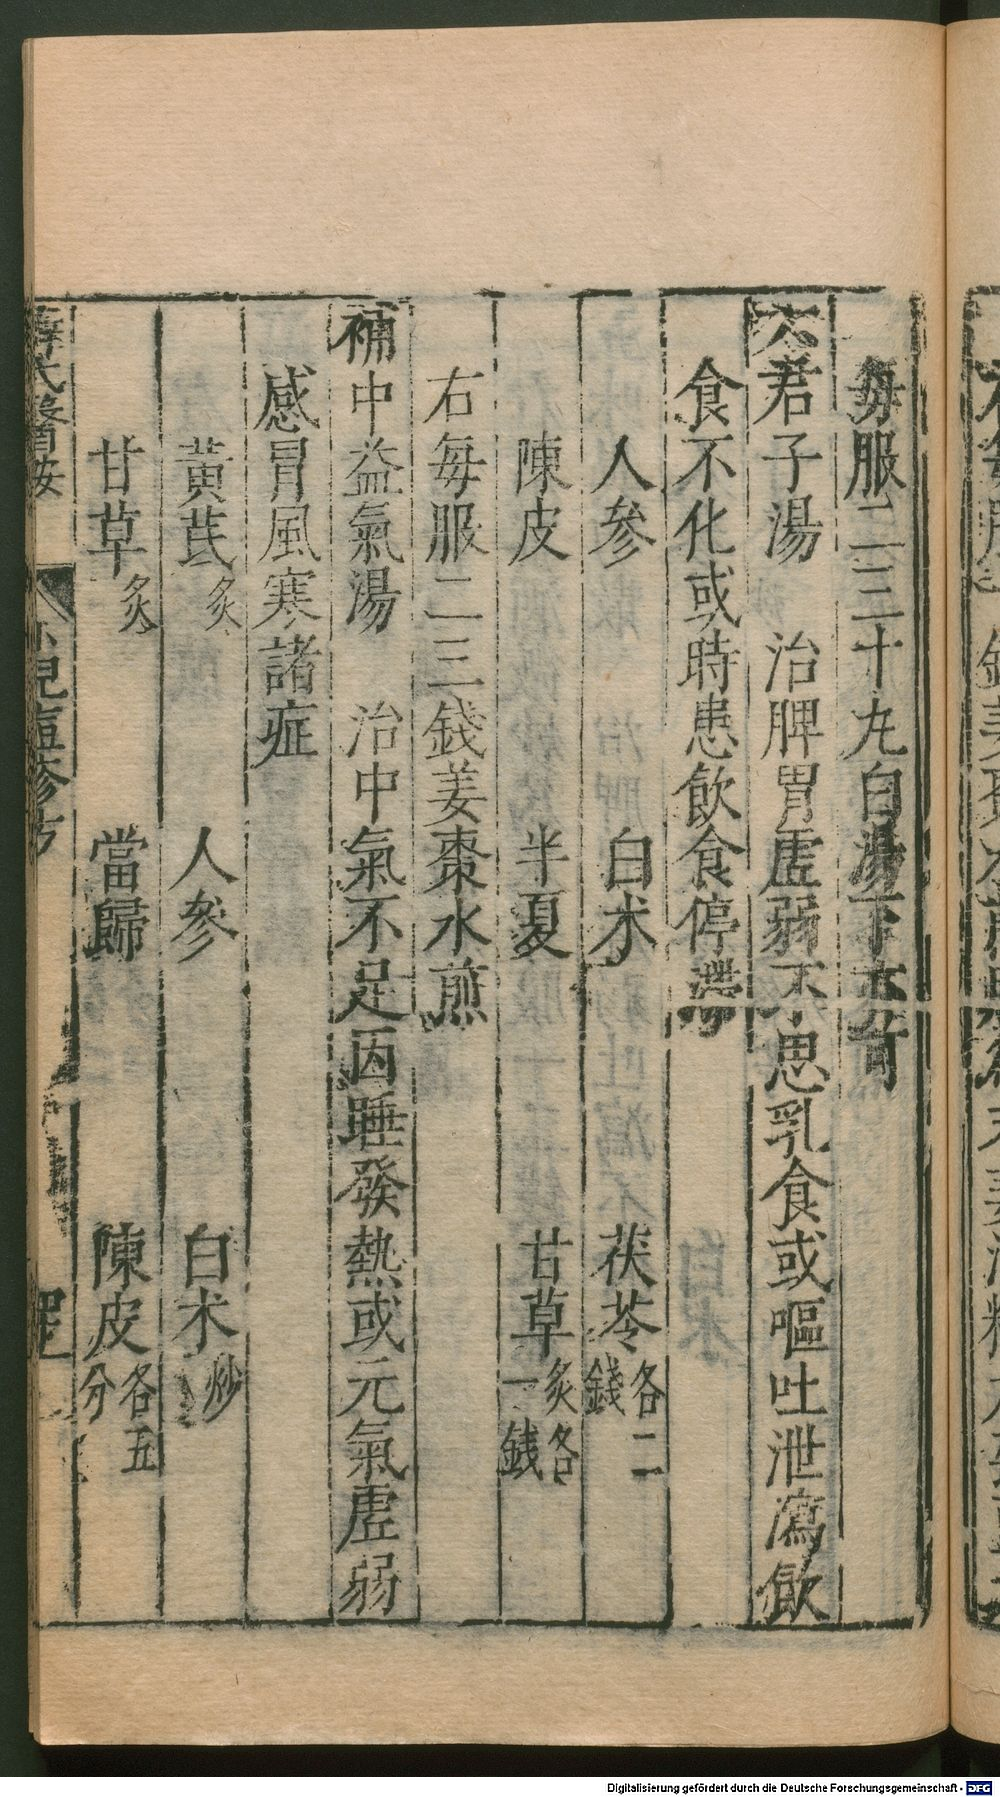 每服二三十丸白湯下
六君子湯　治脾胃虛弱不思乳食或嘔吐泄瀉飲
食不化或時患飲食停滯
人參　白朮　茯苓各二錢
陳皮　半夏　甘草炙各一錢
右每服二三錢姜棗水煎
補中益氣湯　治中氣不足因睡發熱或元氣虛弱
感冒風寒諸症
黃芪炙　人參　白朮炒
甘草炙　當歸　陳皮各五分
薛氏醫按　小兒痘疹方
Digitalisierung gefördert durch die Deutsche Forschungsgemeinschaft - DFG